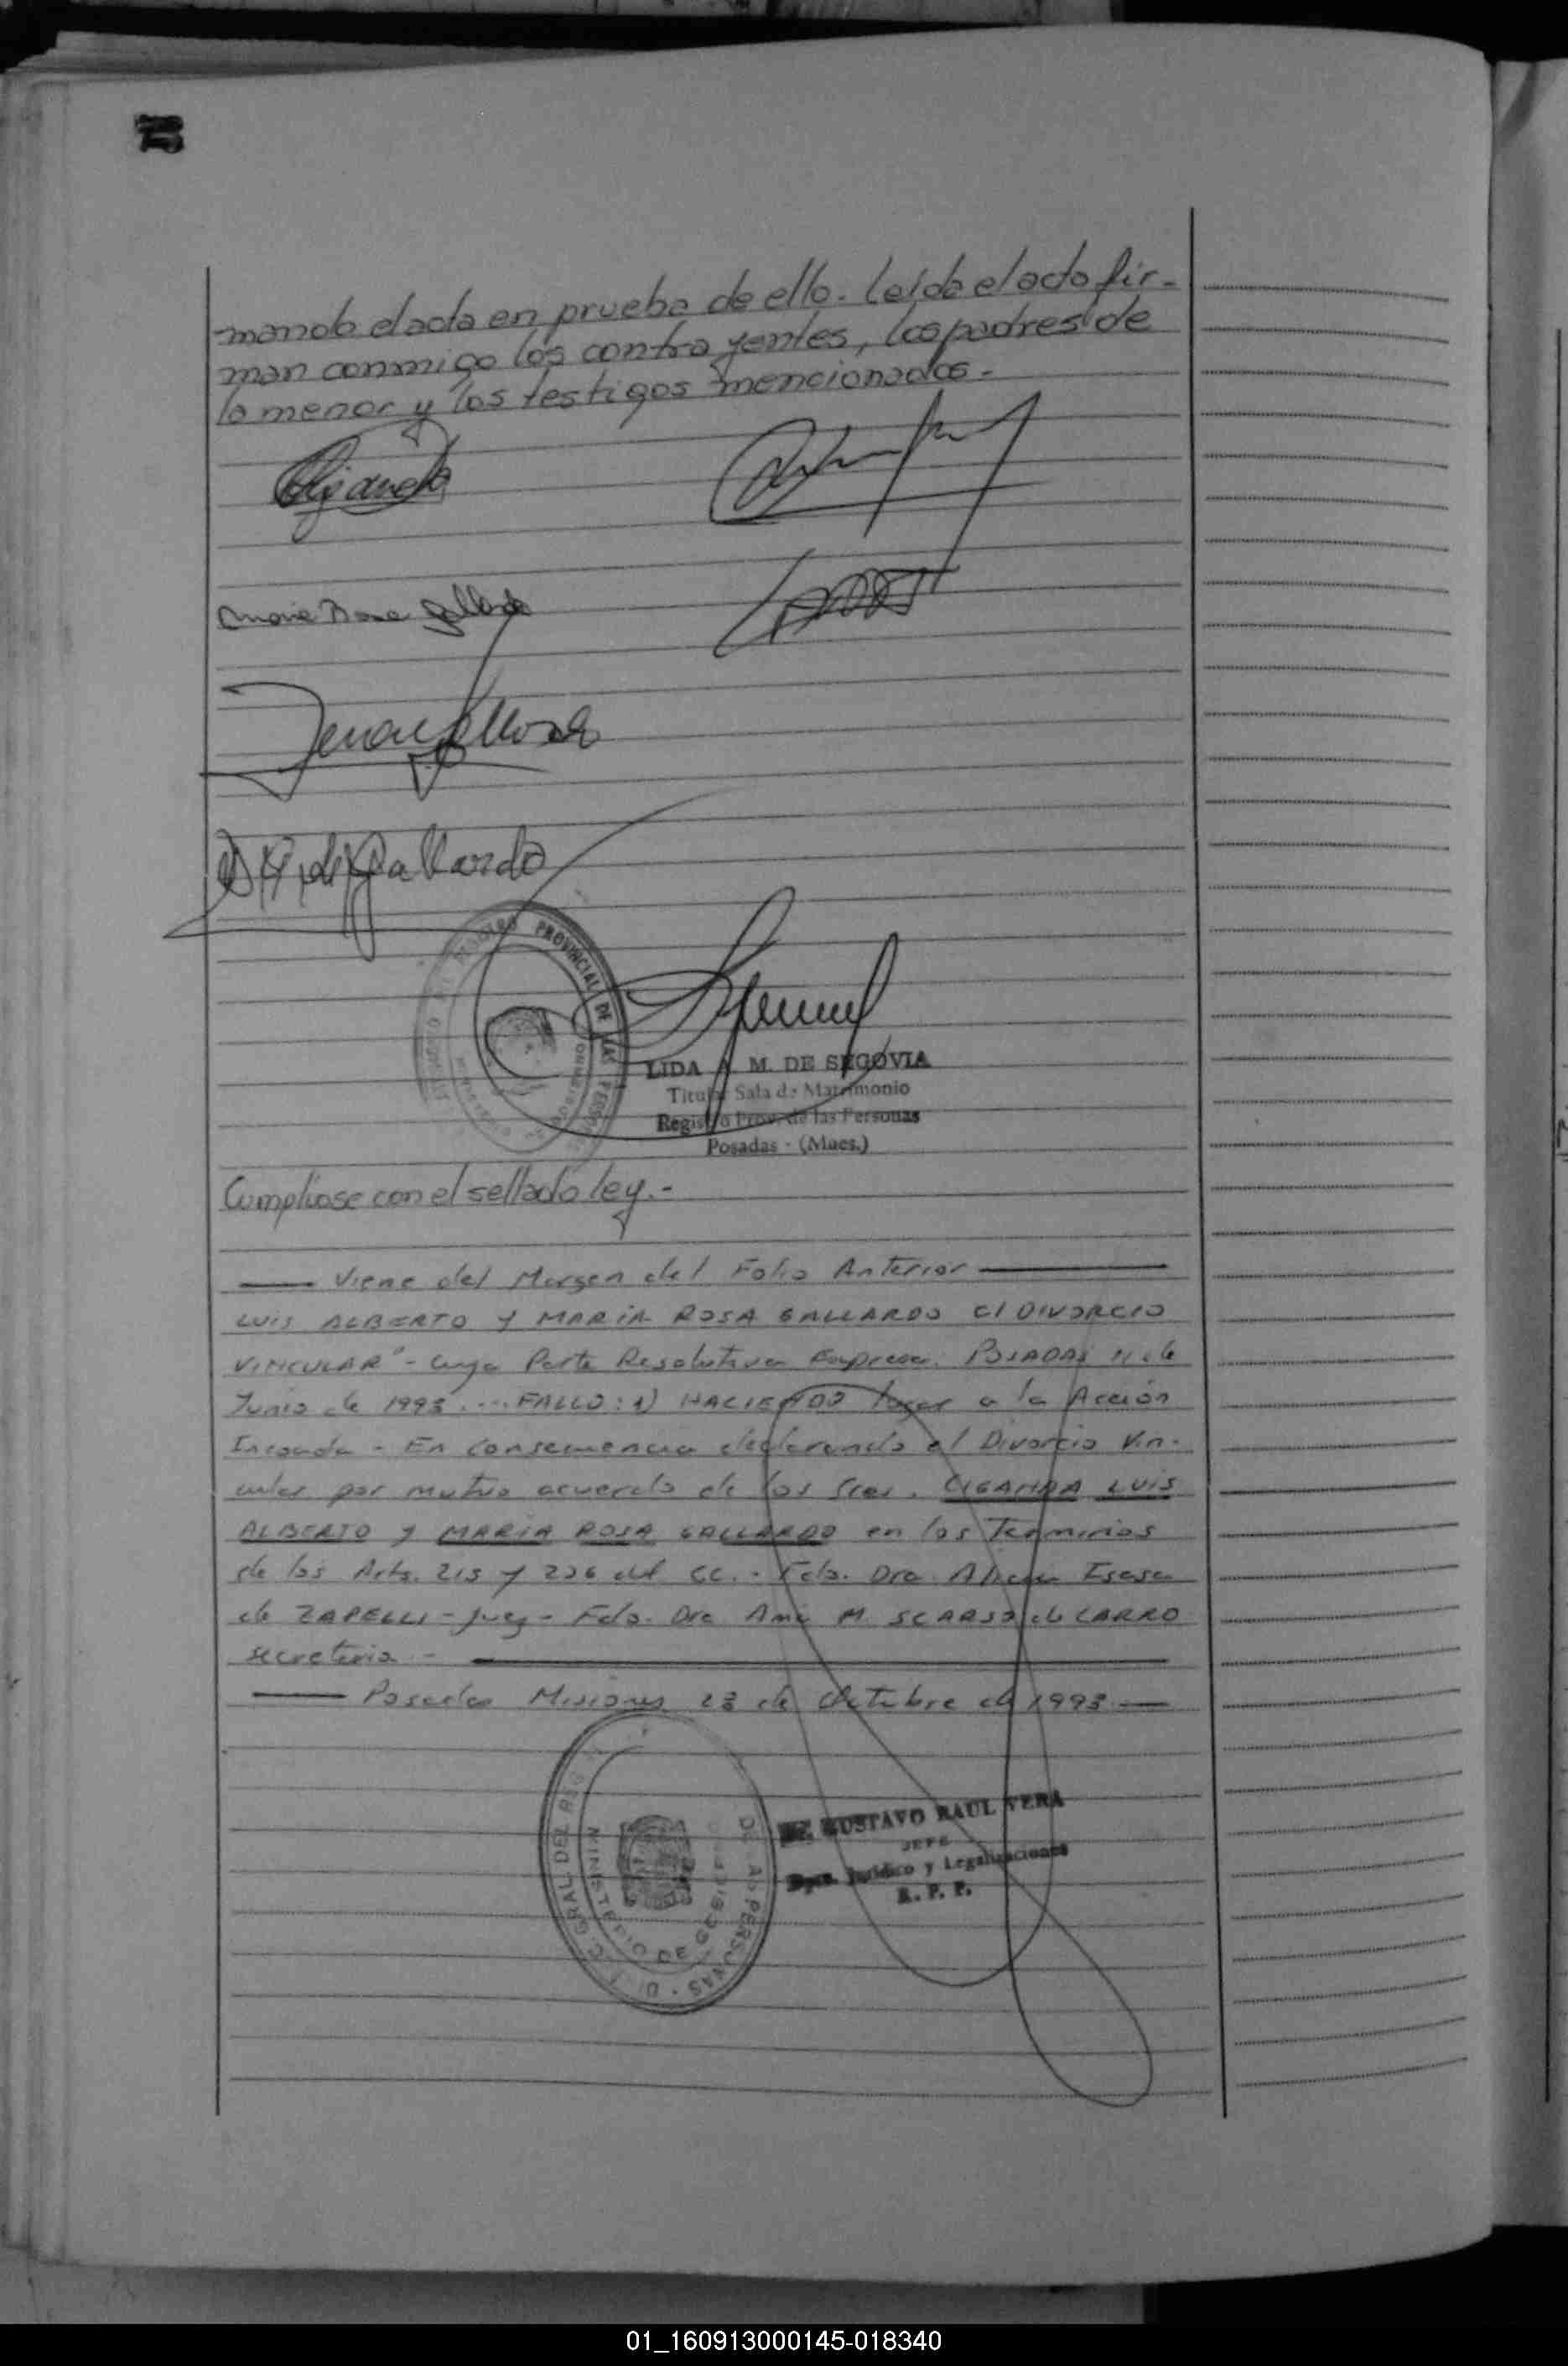 mando el acta en prueba de ello. Leída el acta fir-
man conmigo los contrayentes, los padres de
la menor y los testigos mencionados.-
Maria Rosa Gallardo
Gallardo
de Gallardo
PROVINCIAL DE LAS PERSONAS
LIDA A. M. DE SEGOVIA
Titular Sala de Matrimonio
Registro Prov. de las Personas
Posadas - (Mnes.)
Cumplióse con el sellado ley.-
Viene del Margen del Folio Anterior
LUIS ALBERTO Y MARIA ROSA GALLARDO S/ DIVORCIO
VINCULAR"- Cuya Parte Resolutiva Expresa: POSADAS 11 de
Junio de 1993 .... FALLO: 1) HACIENDO lugar a la Acción
Incoada - En consecuencia declarando el Divorcio Vin-
cular por mutuo acuerdo de los Sres. CIGANDA LUIS
ALBERTO y MARIA ROSA GALLARDO en los Terminios
de los Arts. 215 y 236 del CC. - Fdo. Dra. Alicia
de ZAPELLI - Juez - Fdo. Dra Ana M. SCARSO de CARRO
secretaria -
Posadas Misiones 23 de Octubre de 1993
GRAL DEL DE LAS PERSONAS
MINISTERIO DE GOBIERNO
Dr. GUSTAVO RAUL VERA
JEFE
Dpto. Jurídico y Legalizaciones
R. P. P.
01_160913000145-018340